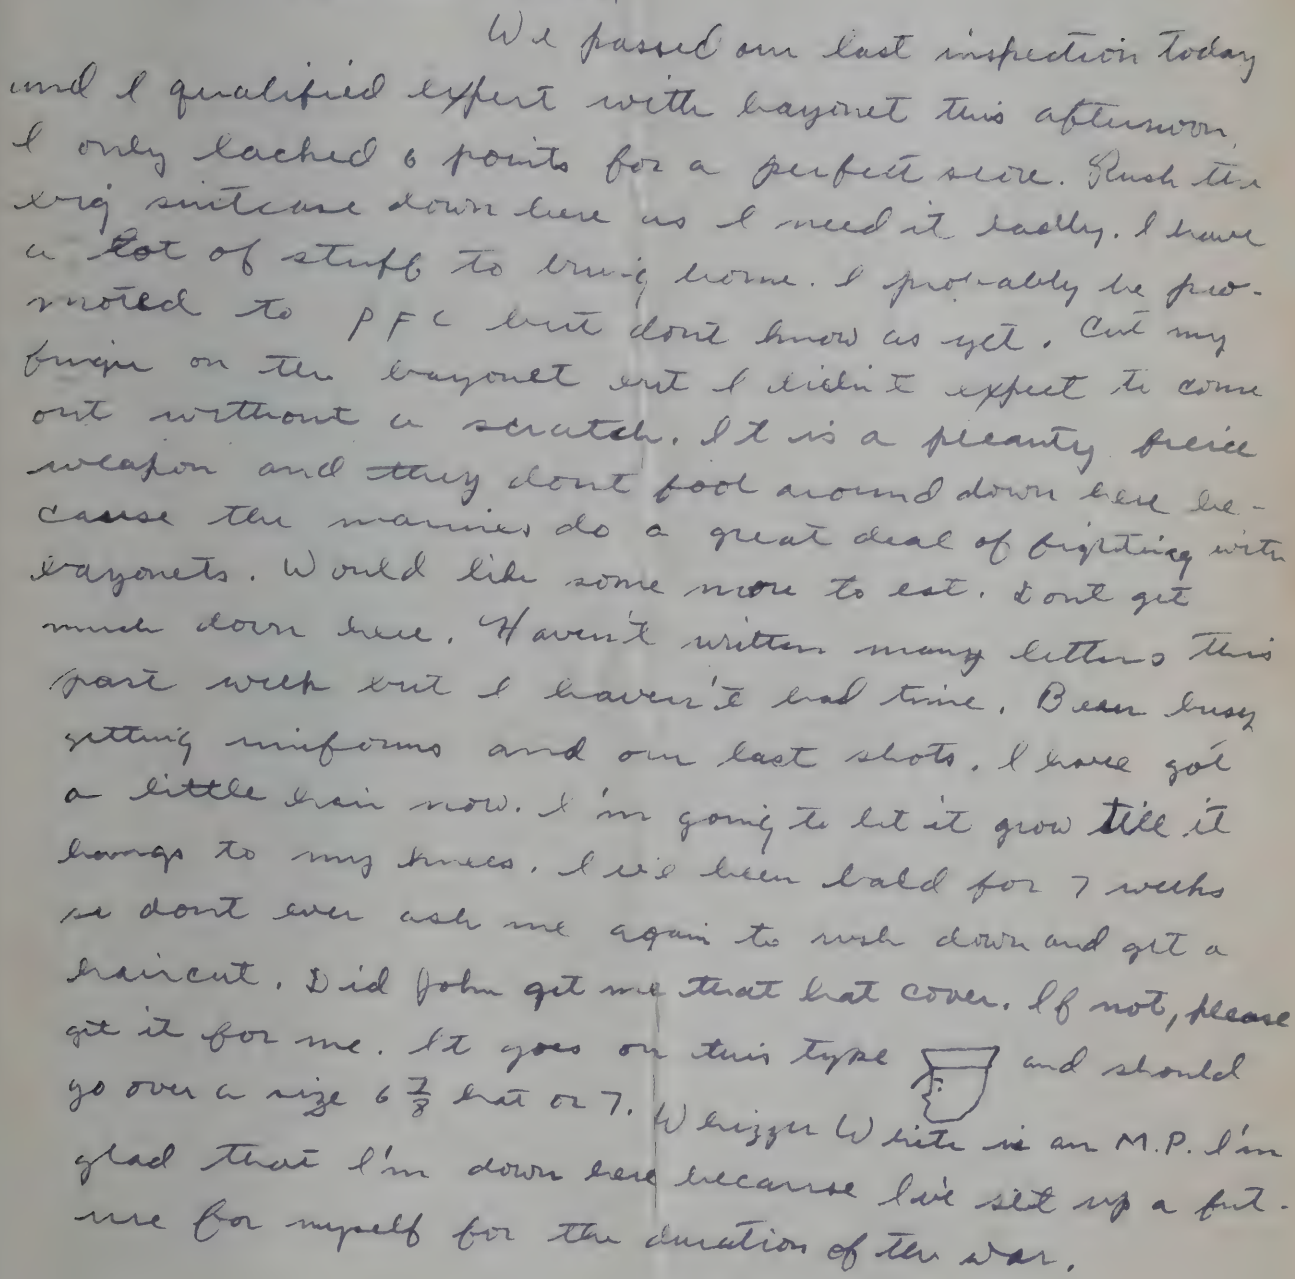 We passed our last inspection today
and I qualified expert with bayonet this afternoon.
I only lacked 6 points for a perfect score. Rush the
big suitcase down here as I need it badly. I have
a lot of stuff to bring home. I probably be pro-
moted to PFC but dont know as yet. Cut my
finger on the bayonet but I didn't expect to come
out without a scratch. It is a pleanty fierce
weapon and they dont fool around down here be-
cause the marines do a great deal of fighting with
bayonets. Would like some more to eat. Dont get
much down here. Haven't written many letters this
past week but I haven't had time. Been busy
getting uniforms and our last shots. I have got
a little hair now. I'm going to let it grow till it
hangs to my knees. I've been bald for 7 weeks
so dont ever ask me again to rush down and get a
haircut. Did John get me that hat cover. If not, please
get it for me. It goes on this type and should
go over a size 6 7/8 hat or 7. Whizzer White is an M.P. I'm
glad that I'm down here because I've set up a fut-
ure for myself for the duration of the war.